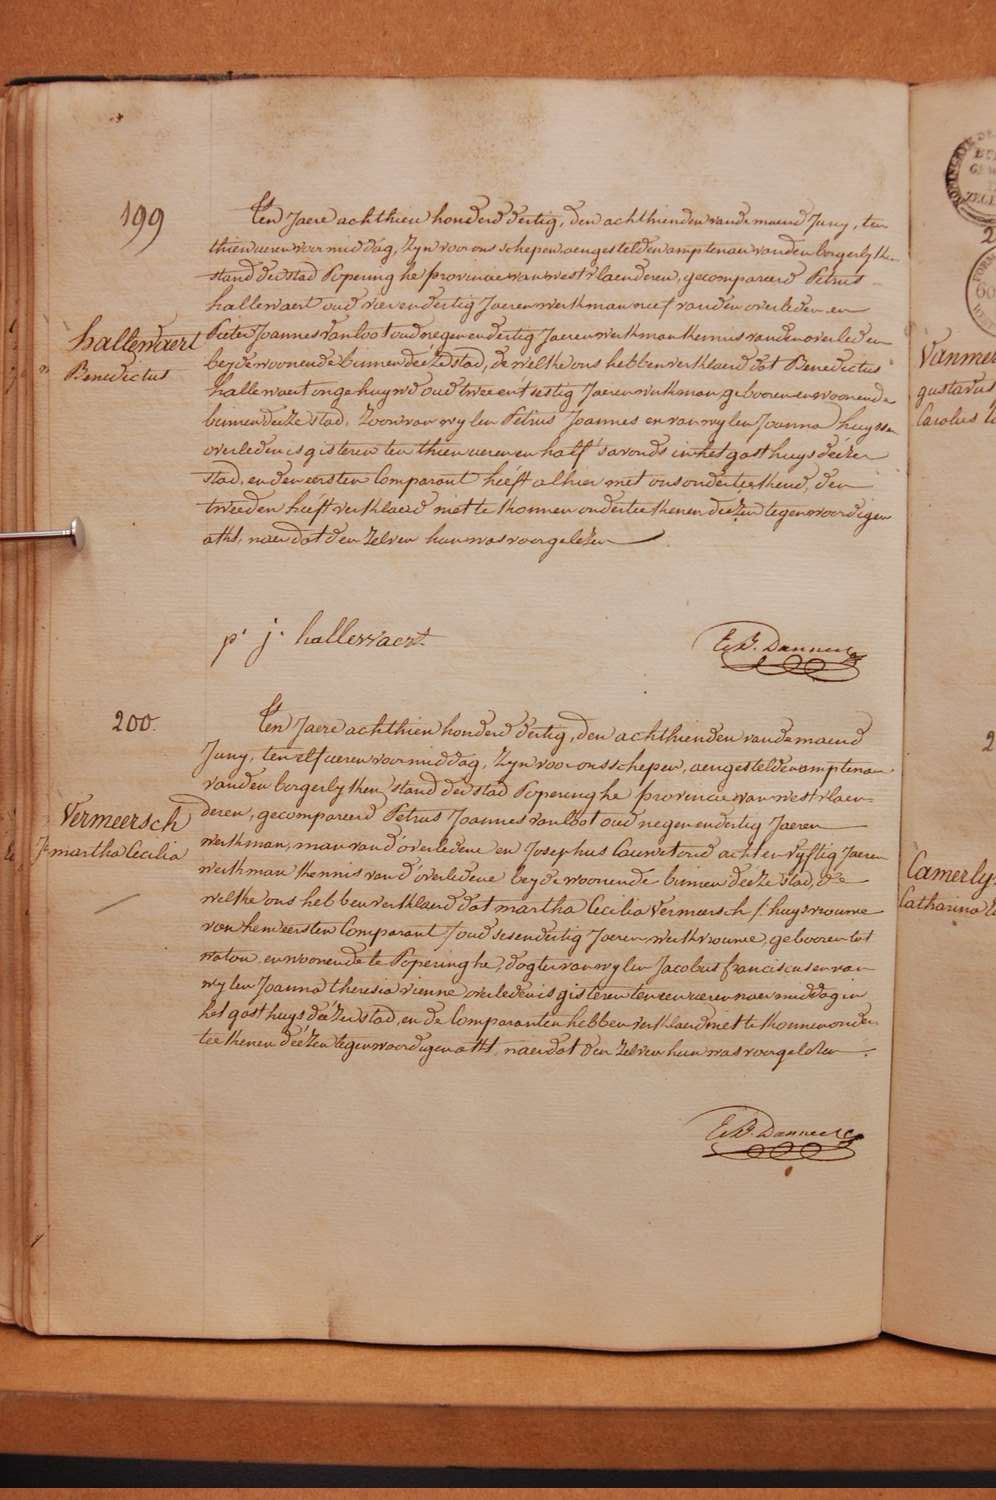 199
Hallewaert
Benedictus
Ten Jaere achthien honderd dertig, den achthienden van de maend Juny, ten
thien ueren voormiddag, Zyn voor ons schepen aengestelden amptenaer van den borgerlyken
stand der stad Poperinghe provincie van westvlaenderen, gecompareerd Petrus
hallewaert oud vierendertig Jaeren werkman neef van den overleden en
Pieter Joannes vanloot oud negenendertig Jaeren werkman kennis van den overleden
beyde woonende binnen deéze stad, de welke ons hebben verklaerd dat Benedictus
hallewaert ongehuywd oud twee en t'sestig Jaeren werkman, gebooren en woonende
binnen deéze stad, Zoon van wylen Petrus Joannes en van wylen Joanna huyssen
overleden is gisteren ten thien ueren en half s'avonds in het gasthuys deézer
stad, en den eersten Comparant heéft alhier met ons onderteekend, den
tweeden heéft verklaerd niet te konnen onderteekenen deézen tegenwoordigen
akt, naer dat den zelven hun was voorgelezen
p. j. hallewaert
200.
Vermeersch
martha Cecilia
Ten Jaere achthien honderd dertig, den achthienden van de maend
Juny, ten elf ueren voormiddag, Zyn voor ons schepen, aengestelden amptenaer
van den borgerlyken stand der stad Poperinghe provincie van westvlaen-
deren, gecompareerd Petrus Joannes vanloot oud negenendertig Jaeren
werkman, man van d'overledene en Josephus Cauwet oud acht en vyftig Jaeren
werkman kennis van d'overledene beyde woonende binnen deéze stad, de
welke ons hebben verklaerd dat martha Cecilia Vermeersch /: huysvrouwe
van hem eersten Comparant / oud sesendertig Jaeren, werkvrouwe, gebooren tot
watou, en woonende te Poperinghe, dogter van wylen Jacobus franciscus en van
wylen Joanna theresia vienne overleden is gisteren ten een ueren naermiddag in
het gasthuys deézer stad, en de Comparanten hebben verklaerd niet te konnen onder
teekenen deézen tegenwoordigen akt, naer dat den zelven hun was voorgelezen.
Vanmer
gustavus
Carolus
Camerly
Catharina